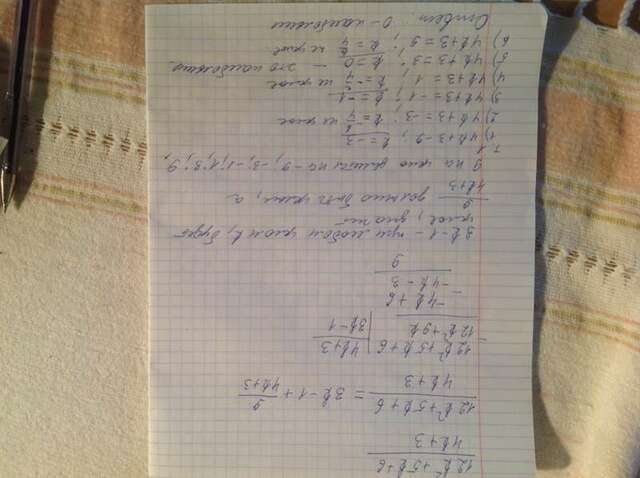 12k²+5k+6
4k+3
12k²+5k+6 / 4k+3 = 3k-1 + 9 / 4k+3
12k²+5k+6 | 4k+3
12k²+9k | 3k-1
-4k+6
-4k-3
9
3k-1 - при любом целом k, будет
целое, значит
9 / 4k+3 должно быть целым, а
9 на цело делится на -9; -3; -1; 1; 3; 9;
1) 4k+3=-9; k=-3
2) 4k+3=-3; k=-6/4 не целое
3) 4k+3=-1; k=-1
4) 4k+3=1; k=-2/4 не целое
5) 4k+3=3; k=0 - это наибольшее
6) 4k+3=9; k=6/4 не целое
Ответ: 0 - наибольшее